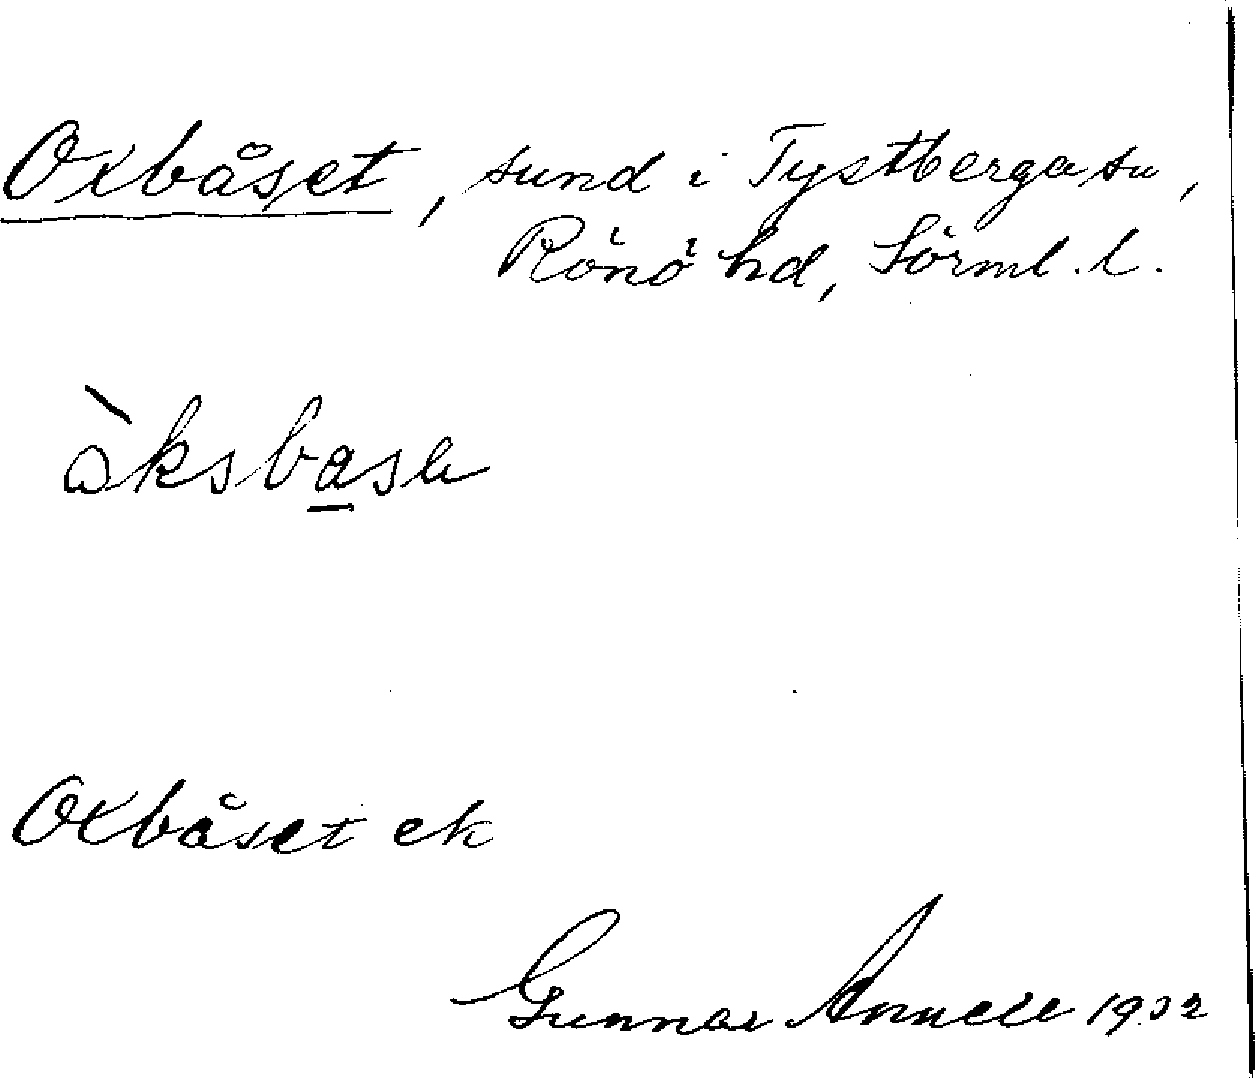 Oxbåset, sund i Tystberga sn,
Rönö hd, Sörml. l.
òksbase
Oxbåset ek
Gunnar Annell 1932